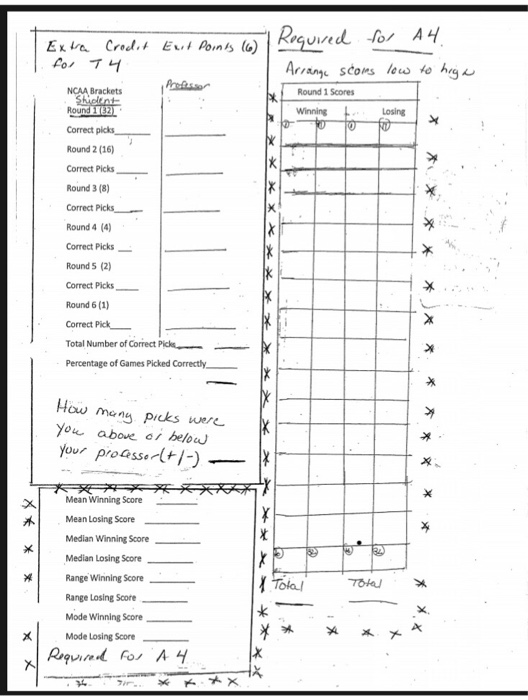 Extra Credit Exit Points (6)
for T4
NCAA Brackets
Student
Professor
Round 1 (32)
Correct picks
Round 2 (16)
Correct Picks
Round 3 (8)
Correct Picks
Round 4 (4)
Correct Picks
Round 5 (2)
Correct Picks
Round 6 (1)
Correct Pick
Total Number of Correct Picks
Percentage of Games Picked Correctly
How many picks were
you above or below
your professor (+/-)
Mean Winning Score
Mean Losing Score
Median Winning Score
Median Losing Score
Range Winning Score
Range Losing Score
Mode Winning Score
Mode Losing Score
Required For A4
Required for A4
Arrange scores low to high
Round 1 Scores
Winning Losing
1 17 1 17
16 32 16 32
Total Total